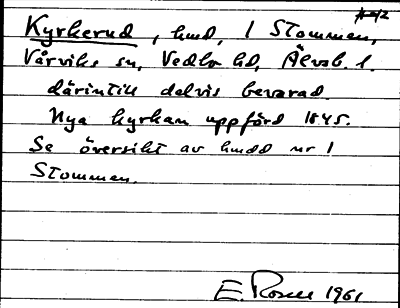 Kyrkerud, hmd, 1 Stommen,
Vårviks sn, Vedbo hd, Älvsb. l.
därintill delvis bevarad.
Nya kyrkan uppförd 1845.
Se översikt av hmdd nr 1
Stommen.
E. Rosell 1961